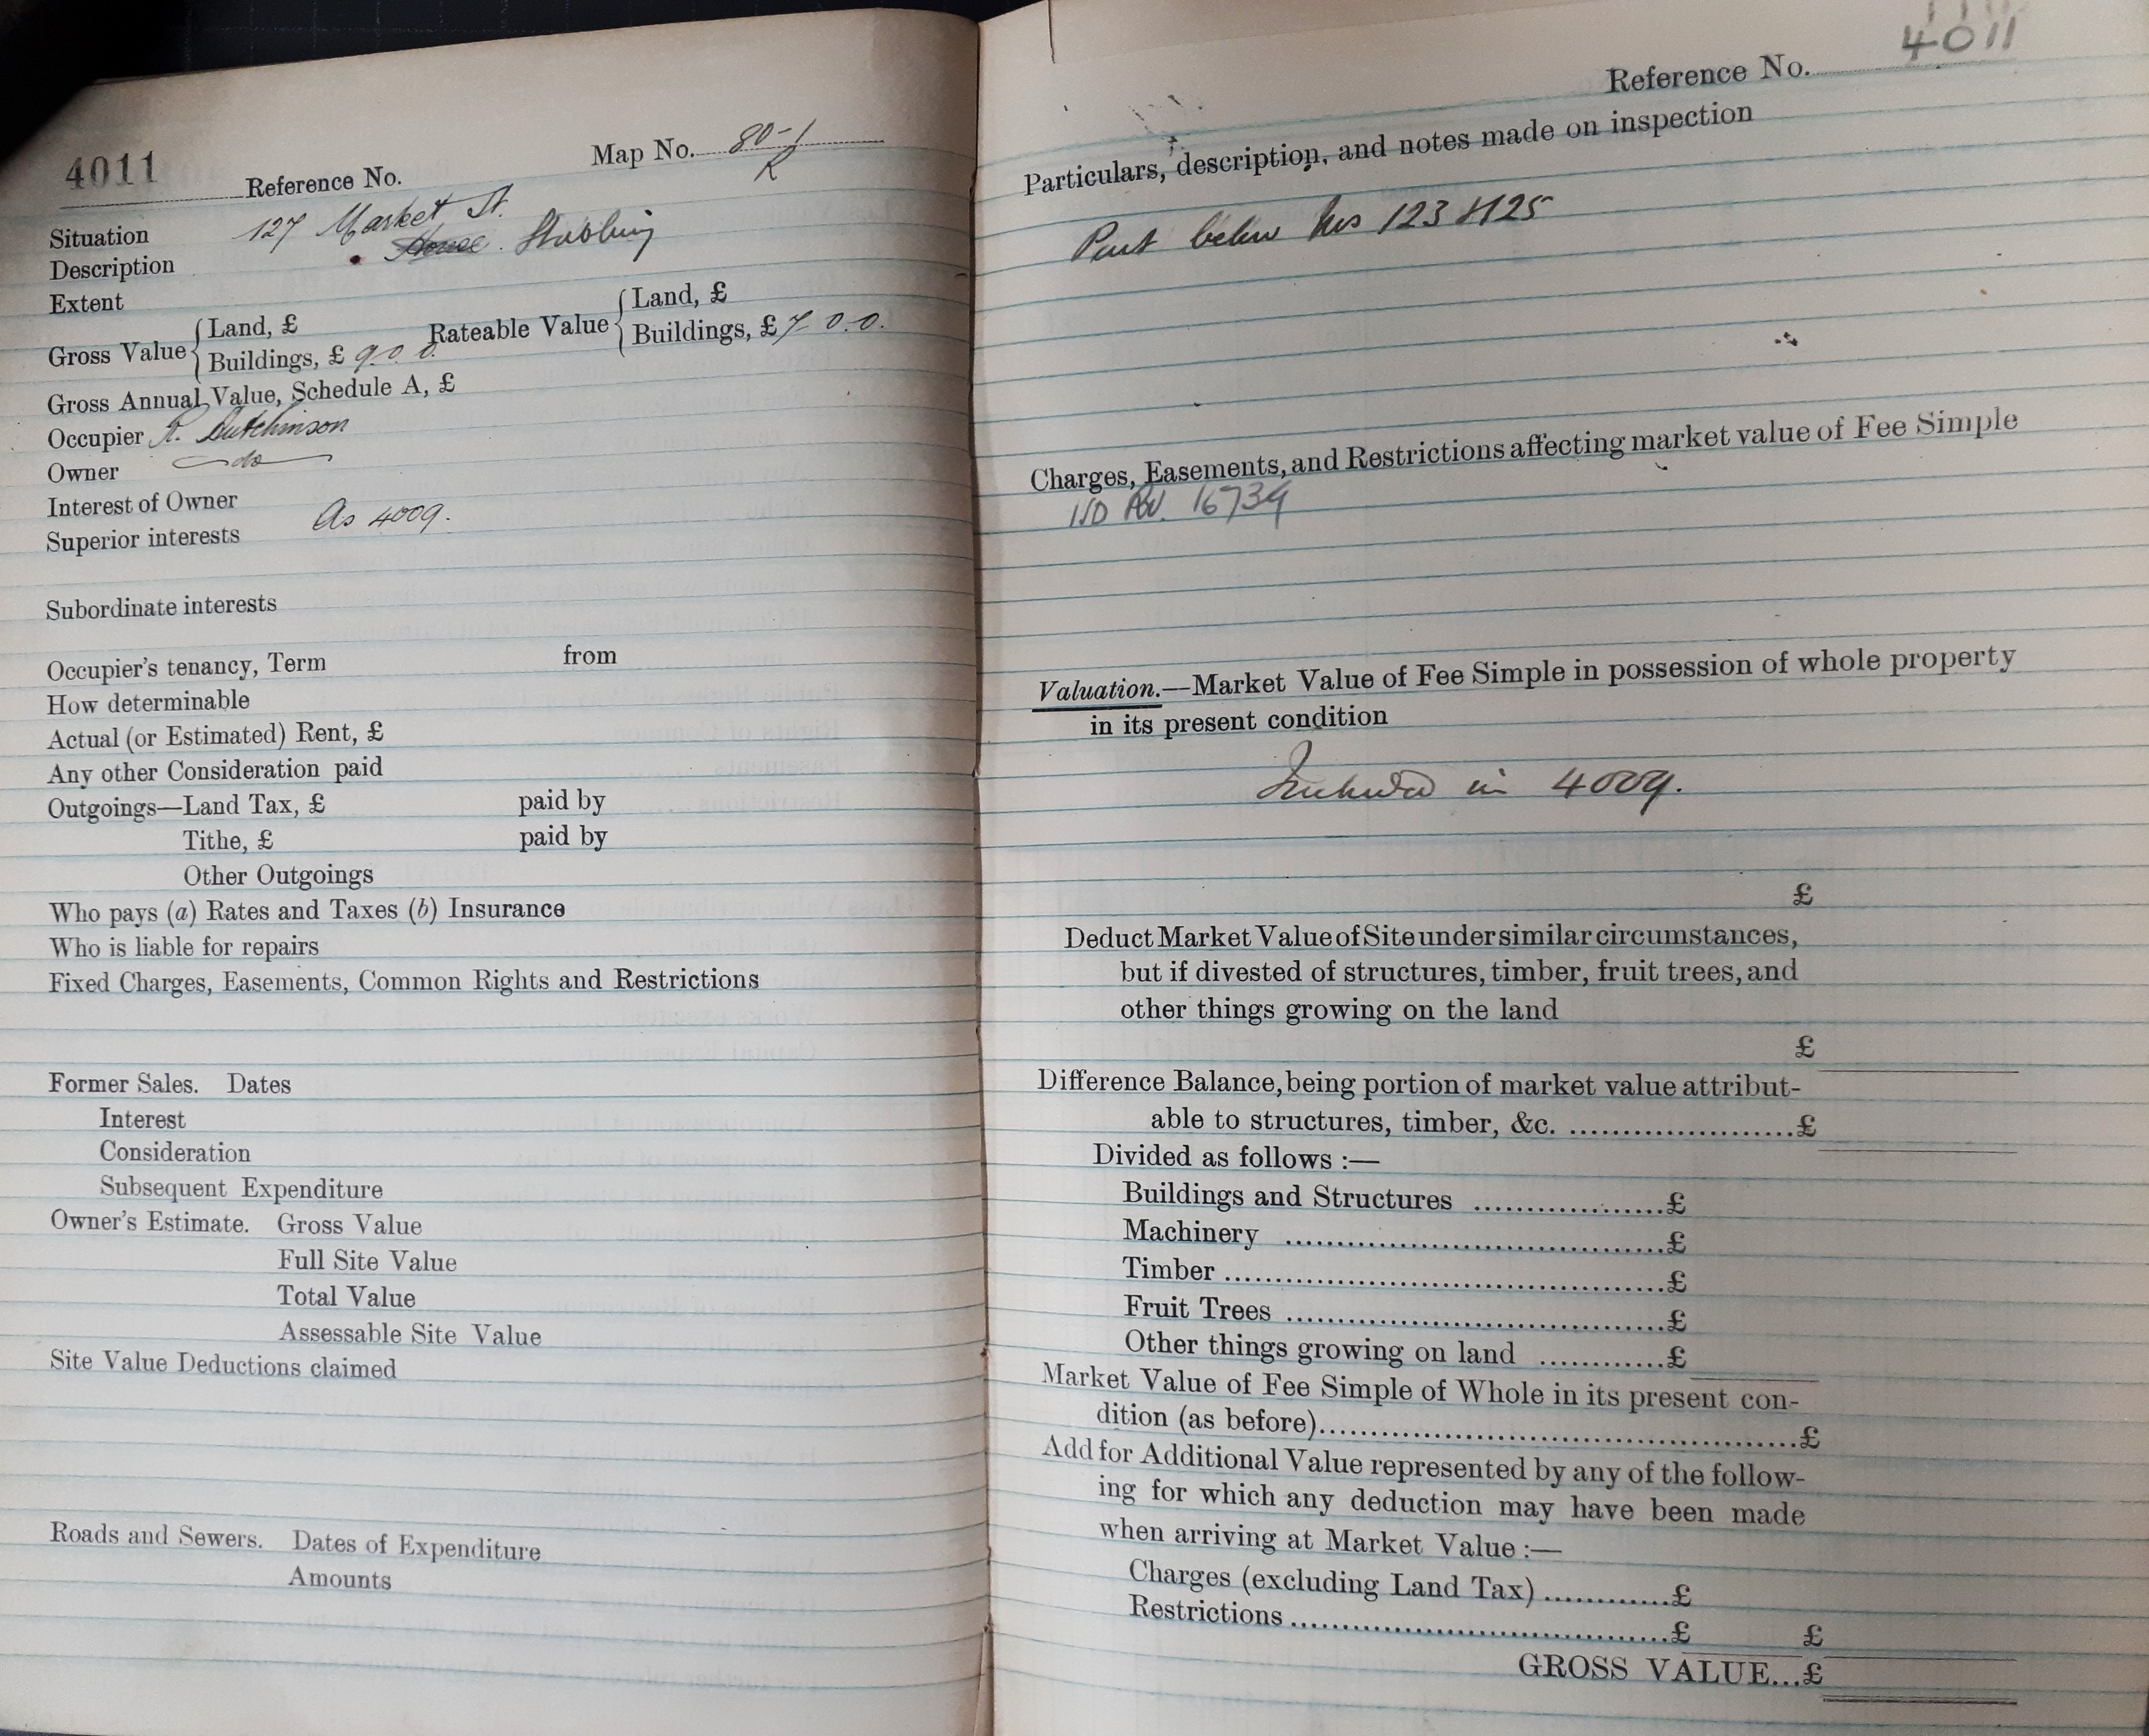 4011
Reference No.
Map No. 80-1
R
Situation 127 Market St.
Description House Stabling
Extent
Gross Value { Land, £
Buildings, £ 9 0 0.
Rateable Value { Land, £
Buildings, £ 7 0.0.
Gross Annual Value, Schedule A, £
Occupier R. Hutchinson
Owner do
Interest of Owner
Superior interests As 4009.
Subordinate interests
Occupier's tenancy, Term from
How determinable
Actual (or Estimated) Rent, £
Any other Consideration paid
Outgoings—Land Tax, £ paid by
Tithe, £ paid by
Other Outgoings
Who pays (a) Rates and Taxes (b) Insurance
Who is liable for repairs
Fixed Charges, Easements, Common Rights and Restrictions
Former Sales. Dates
Interest
Consideration
Subsequent Expenditure
Owner's Estimate. Gross Value
Full Site Value
Total Value
Assessable Site Value
Site Value Deductions claimed
Roads and Sewers. Dates of Expenditure
Amounts
Reference No. 4011
Particulars, description, and notes made on inspection
Part below Nos 123 & 125
Charges, Easements, and Restrictions affecting market value of Fee Simple
16739
Valuation.—Market Value of Fee Simple in possession of whole property
in its present condition
Included in 4009.
£
Deduct Market Value of Site under similar circumstances,
but if divested of structures, timber, fruit trees, and
other things growing on the land
£
Difference Balance, being portion of market value attribut-
able to structures, timber, &c. ....................£
Divided as follows :—
Buildings and Structures .................£
Machinery ..................................£
Timber .......................................£
Fruit Trees ..................................£
Other things growing on land ............£
Market Value of Fee Simple of Whole in its present con-
dition (as before)...........................................£
Add for Additional Value represented by any of the follow-
ing for which any deduction may have been made
when arriving at Market Value :—
Charges (excluding Land Tax) ............£
Restrictions ..................................£ £
GROSS VALUE...£